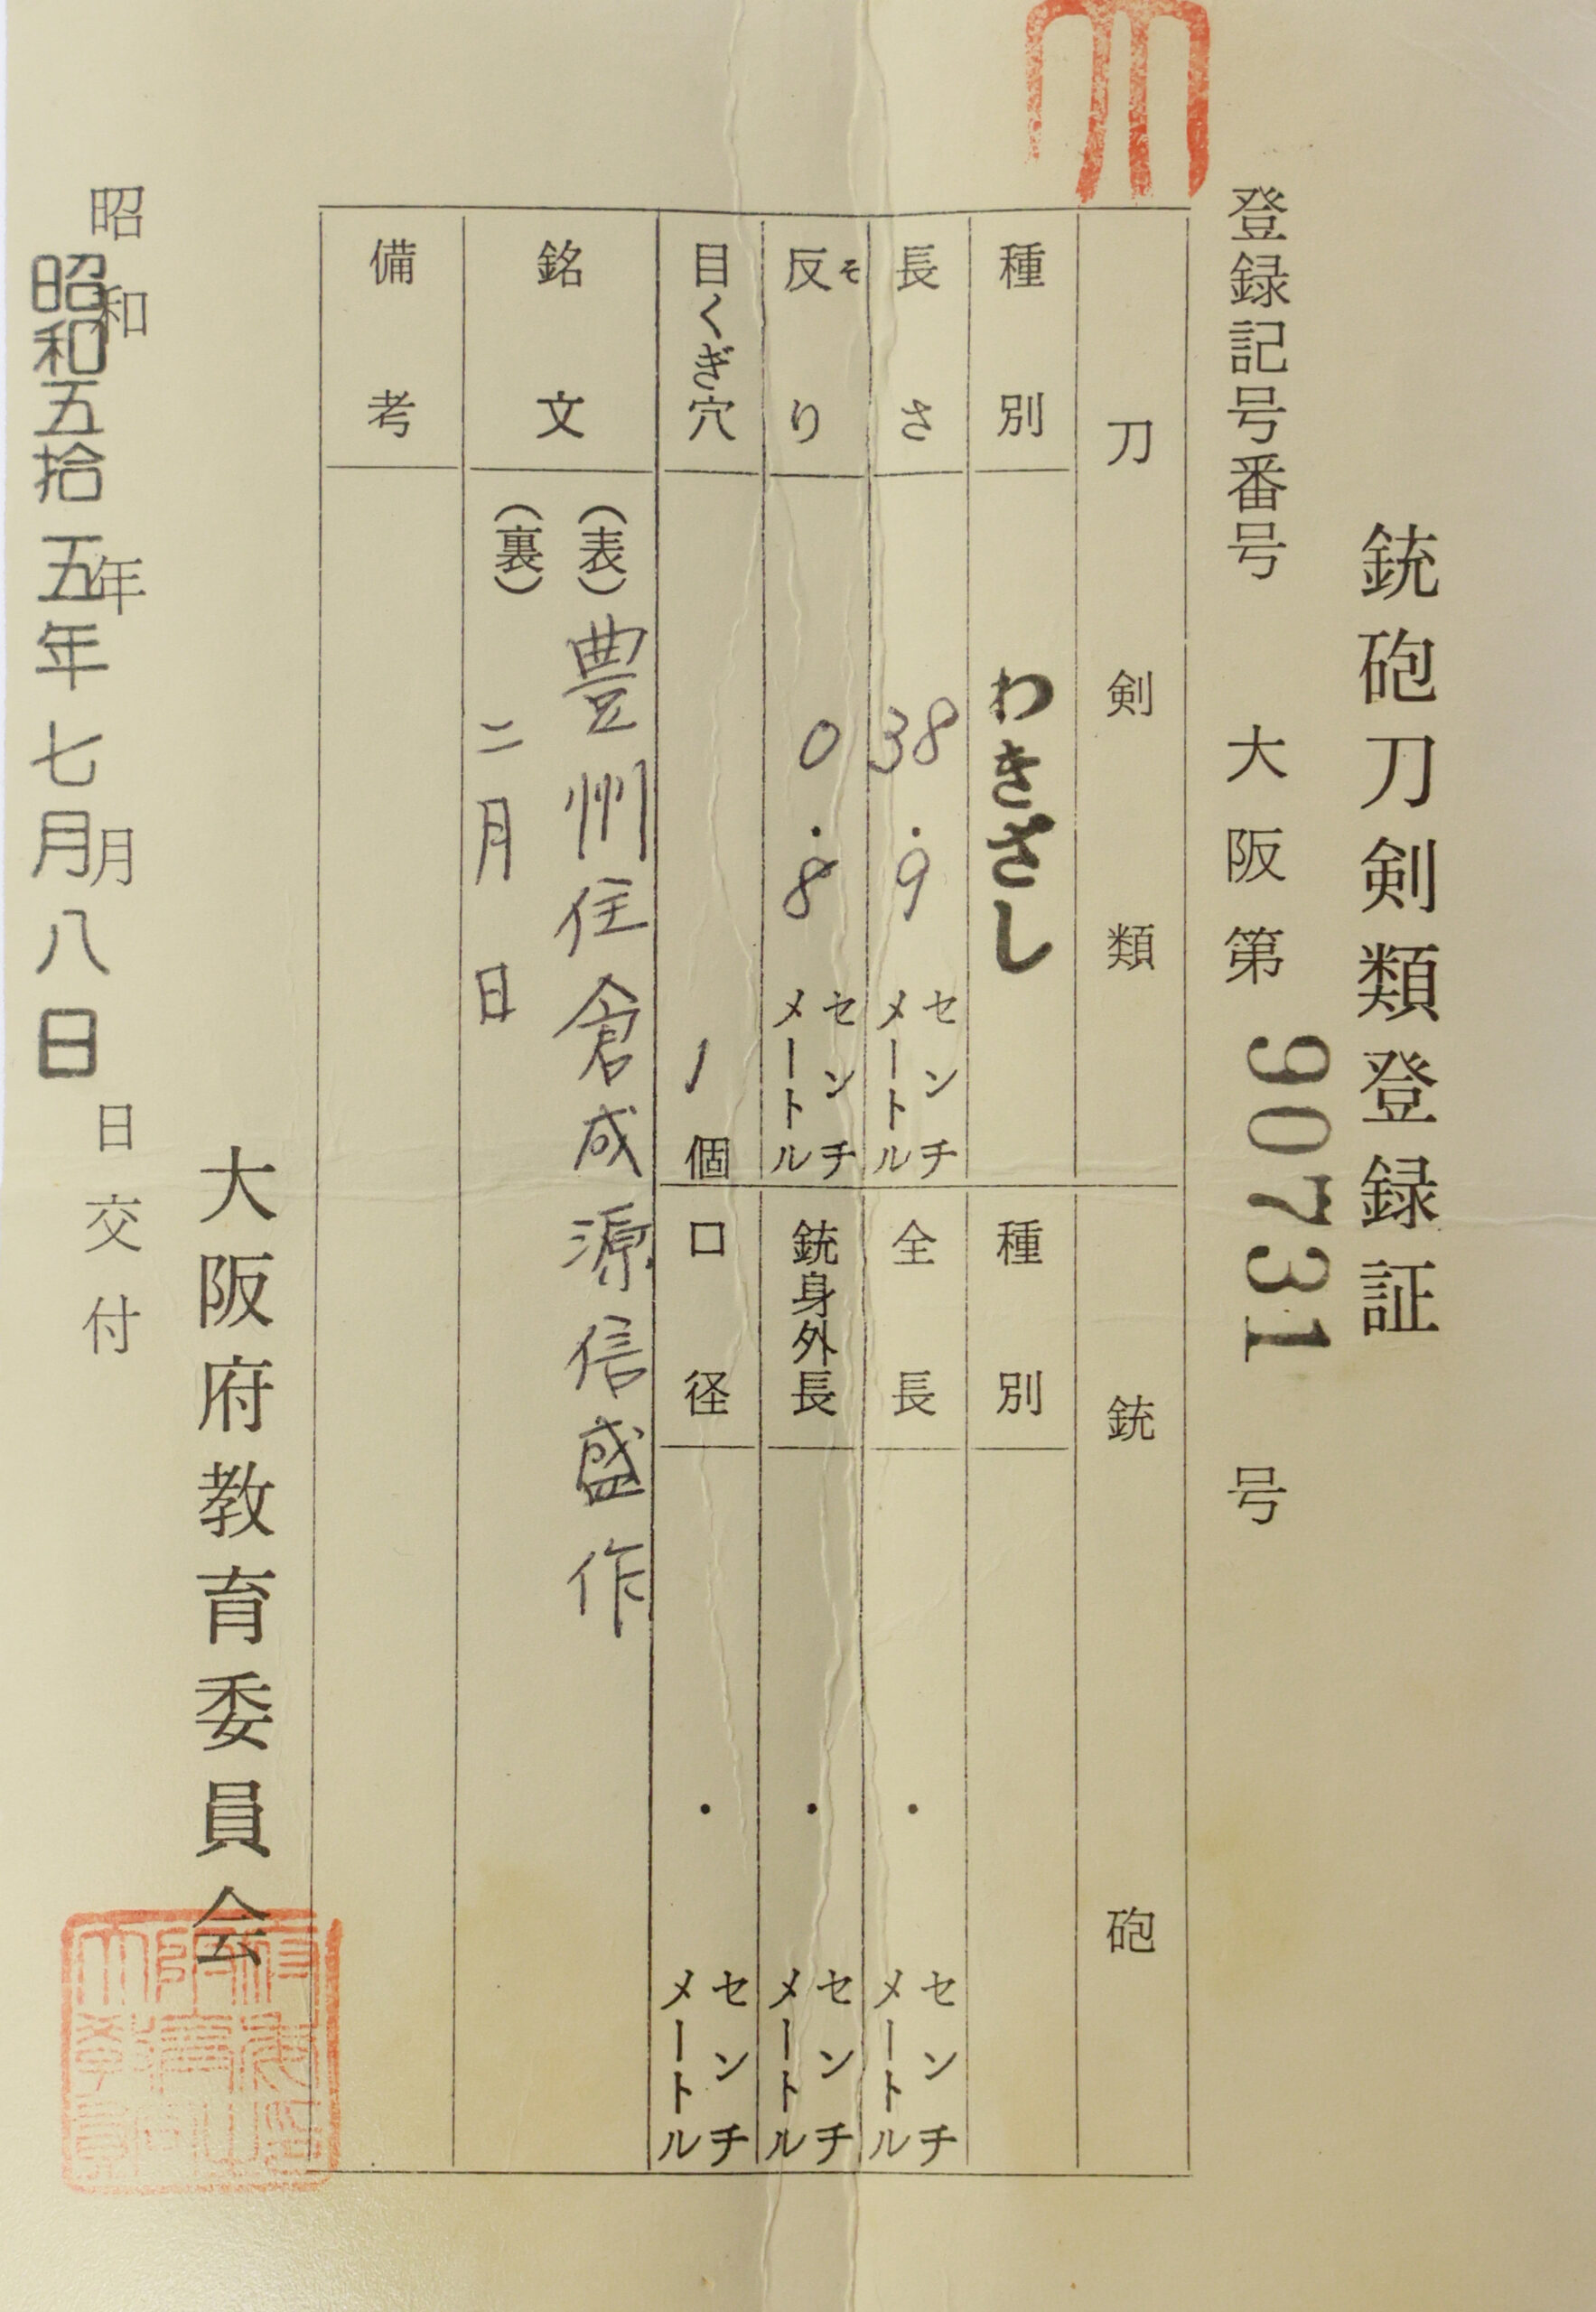 銃砲刀剣類登録証
登録記号番号 大阪第 90731 号
刀剣類
種別 わきざし
長さ 38.9 センチメートル
反り そ 0.8 センチメートル
目くぎ穴 1個
銃砲
種別
全長 ・ センチメートル
銃身外長 ・ センチメートル
口径 ・ センチメートル
銘文 (表) 豊州住倉成源信盛作
(裏) 二月日
備考
大阪府教育委員会
昭和 年 月 日交付
昭和五拾五年七月八日